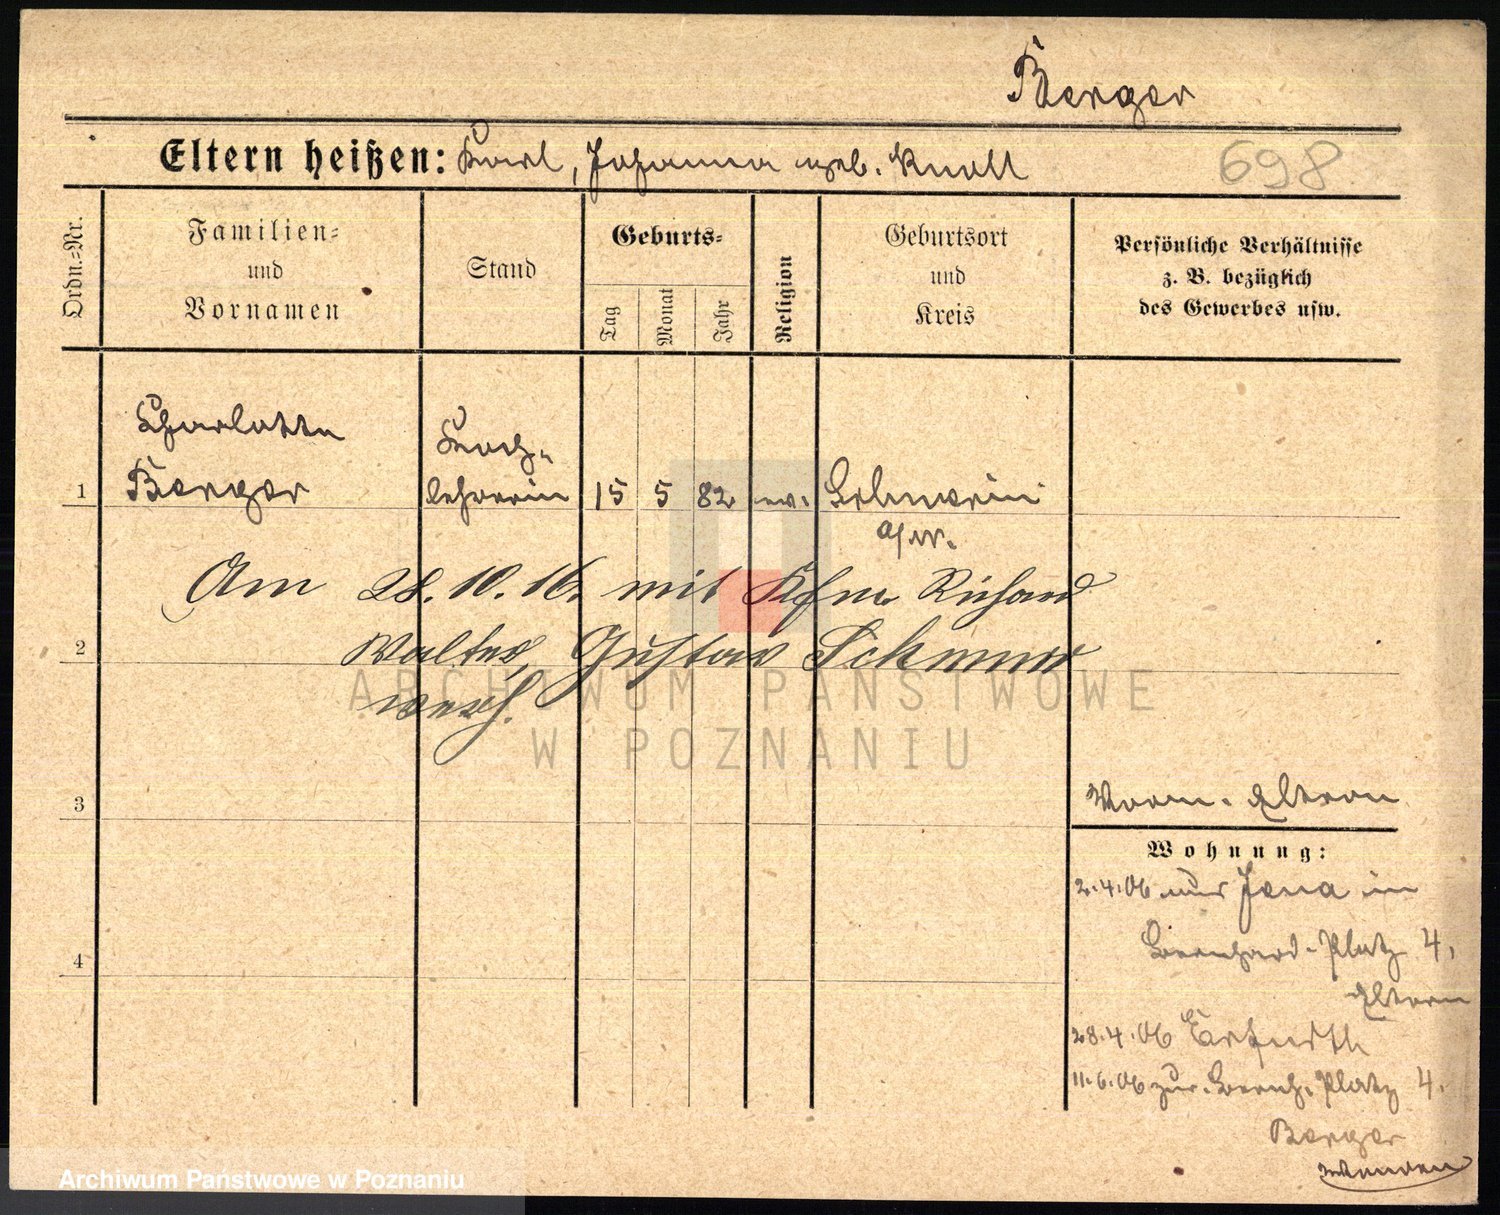 Berger
Eltern heißen: Karl, Johanna geb. Knoll
698
Ordn.-Nr.
Familien-
und
Vornamen
Stand
Geburts-
Tag
Monat
Jahr
Religion
Geburtsort
und
Kreis
Persönliche Verhältnisse
z. B. bezüglich
des Gewerbes usw.
Charlotte
Berger
Koch-
lehrerin
1
15 5 82 ev. Schwerin
a/W.
Am 28.10.16. mit Kfm Richard
2
Walter, Gustav
verh.
3
Eltern
Wohnung:
2.4.06 aus Jena in
Bernhard-Platz 4,
4
Eltern
28.4.06 Erfurth
11.6.06 zur. Bernh. Platz 4.
Berger
Wenden
ARCHIWUM PAŃSTWOWE
W POZNANIU
Archiwum Państwowe w Poznaniu